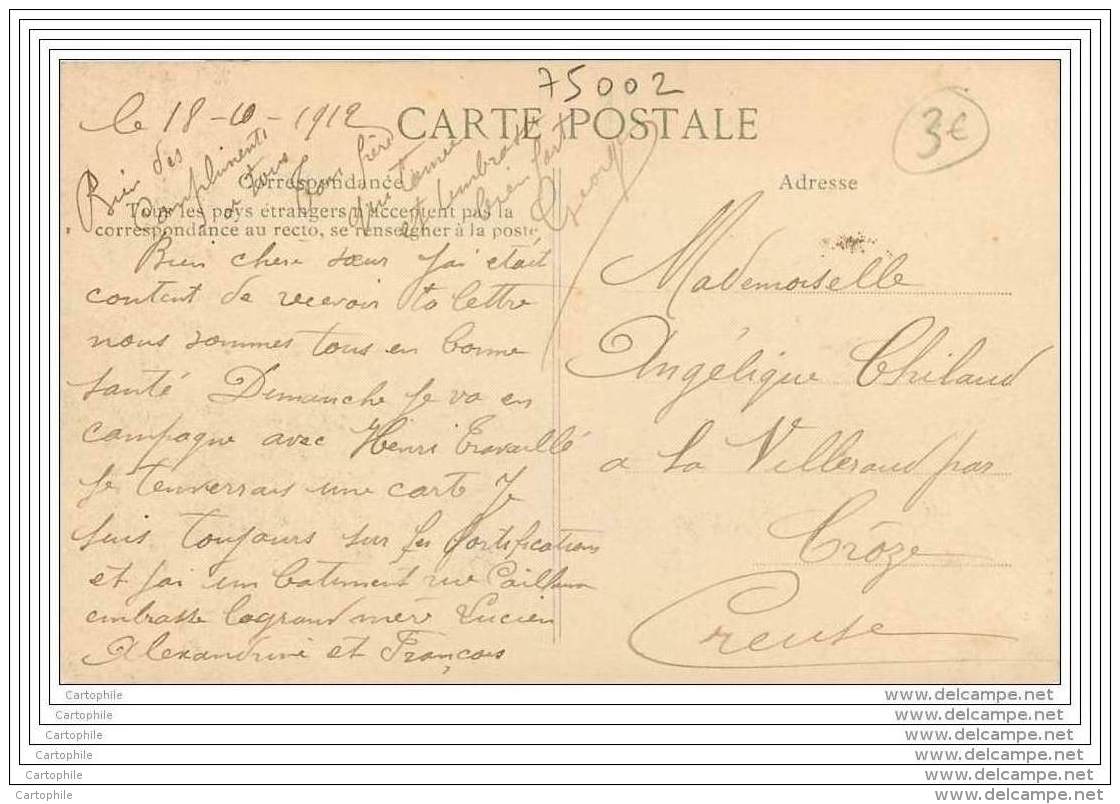 75002
le 18-10-1912
CARTE POSTALE
3€
Bien des
compliments
a tous
Ton frère
qui t'aime
et t'embrasse
bien fort
Georges
Correspondance
Tous les pays étrangers n'acceptent pas la
correspondance au recto, se renseigner à la poste
Adresse
Bien chere sœur j'ai était
content de recevoir ta lettre
nous sommes tous en bonne
santé Dimanche je va en
campagne avec Henri travaillé
je tenverrais une carte je
suis toujours sur les fortifications
et jai un batiment rue
embrasse lagrand mère Lucien
Alexandrine et François
Mademoiselle
Angélique Chilaud
a la Villeraud par
Crôze
Creuse
Cartophile
www.delcampe.net
Cartophile
www.delcampe.net
Cartophile
www.delcampe.net
Cartophile
www.delcampe.net
Cartophile
www.delcampe.net
Cartophile
www.delcampe.net